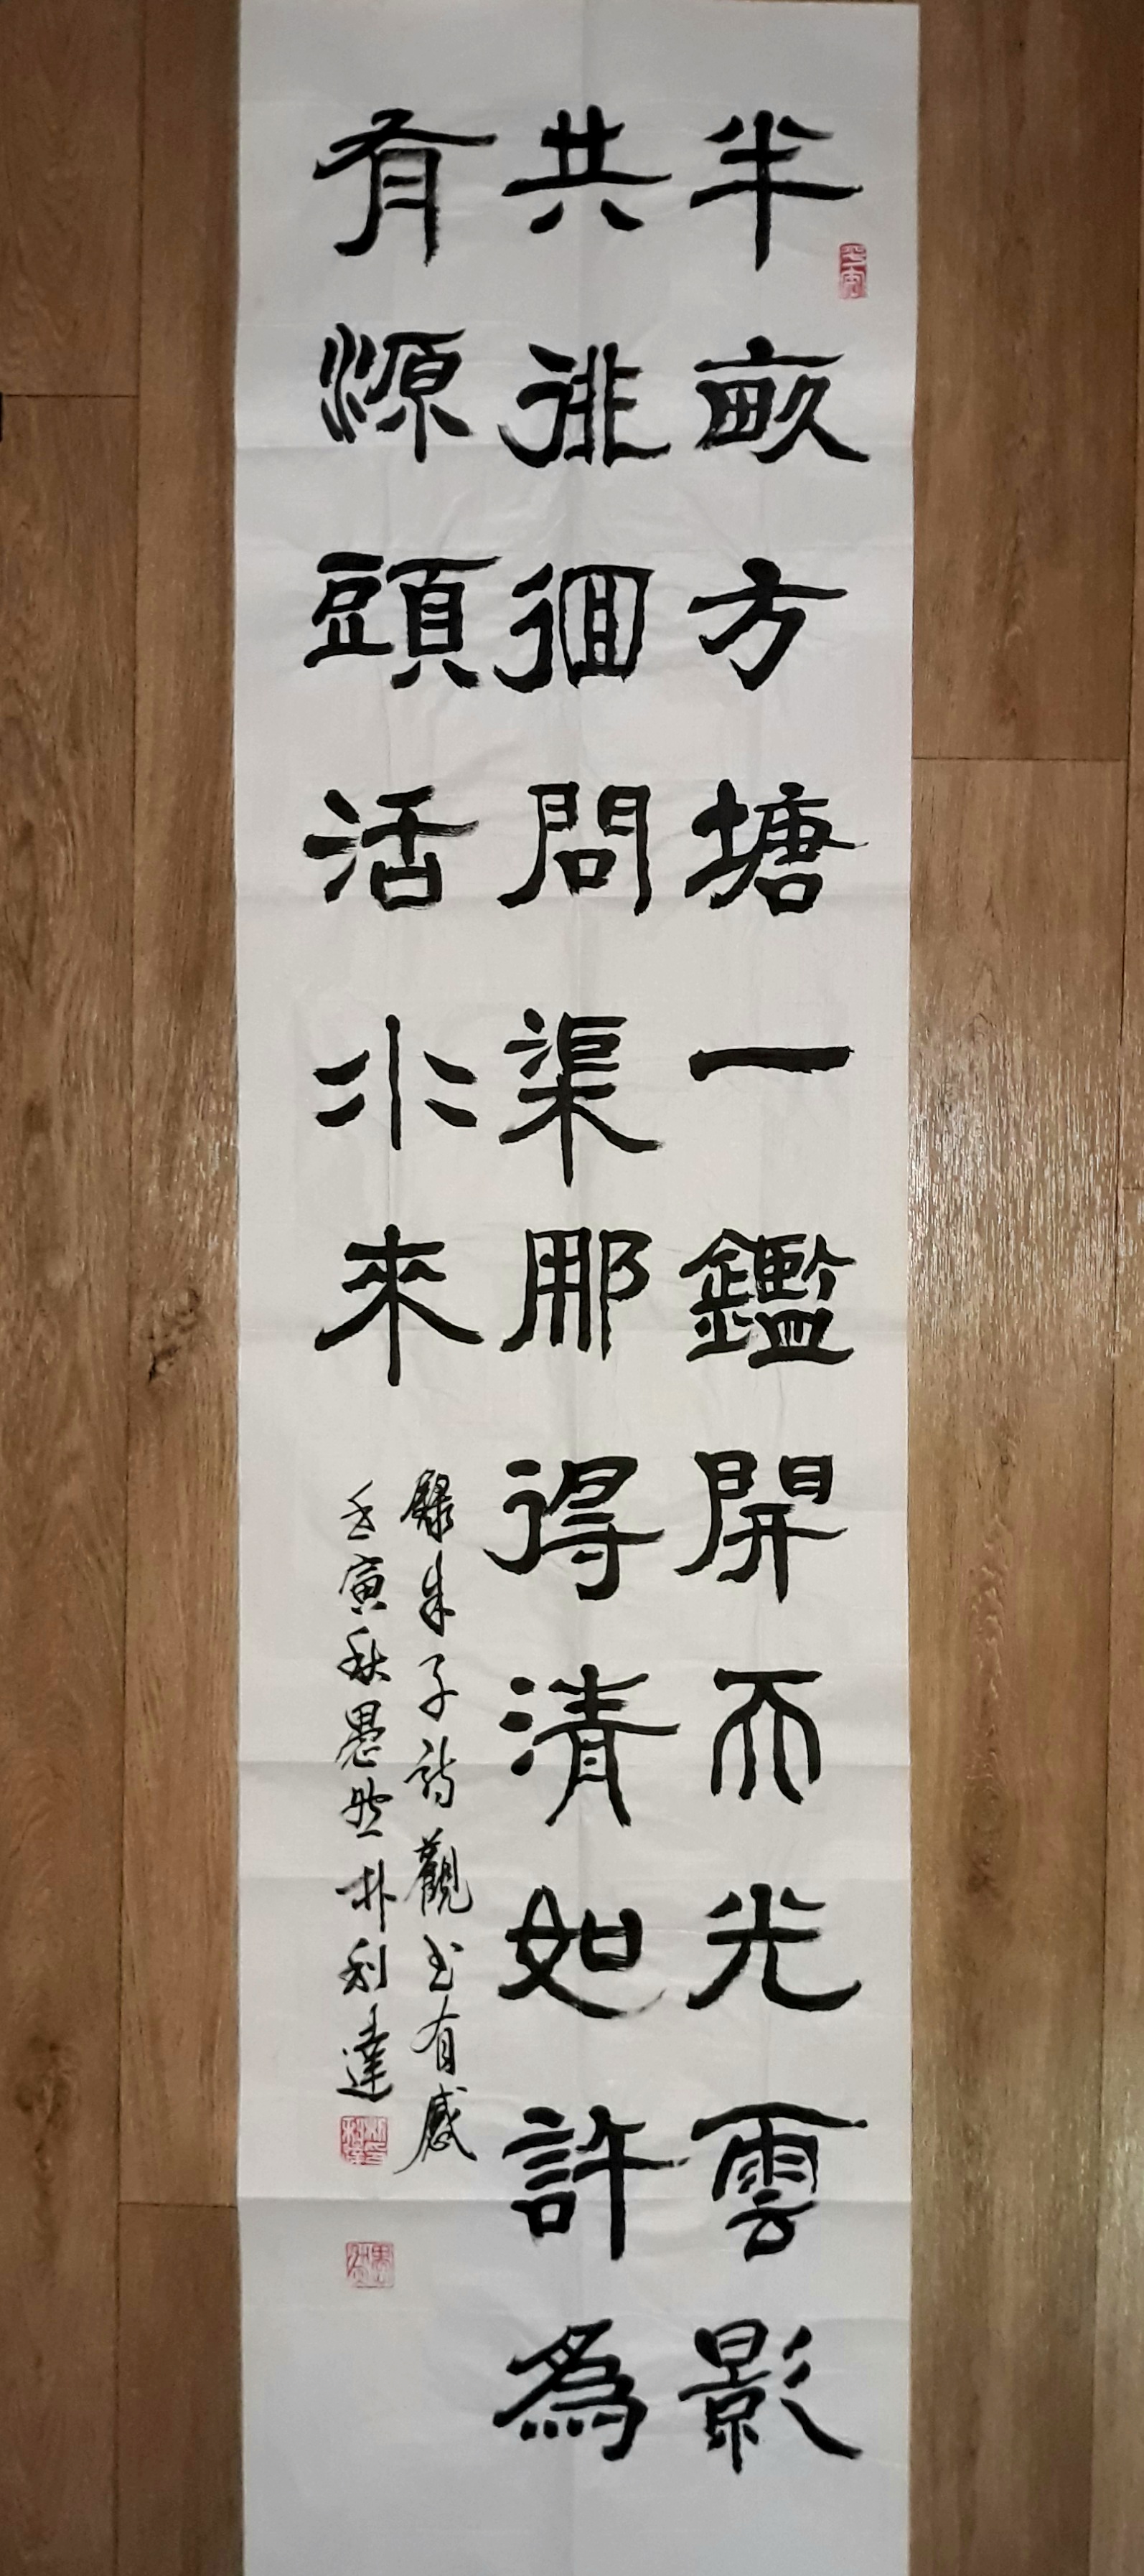 半畝方塘一鑑開天光雲影
共徘徊問渠那得清如許為
有源頭活水來
錄朱子詩觀書有感
壬寅秋朴利達